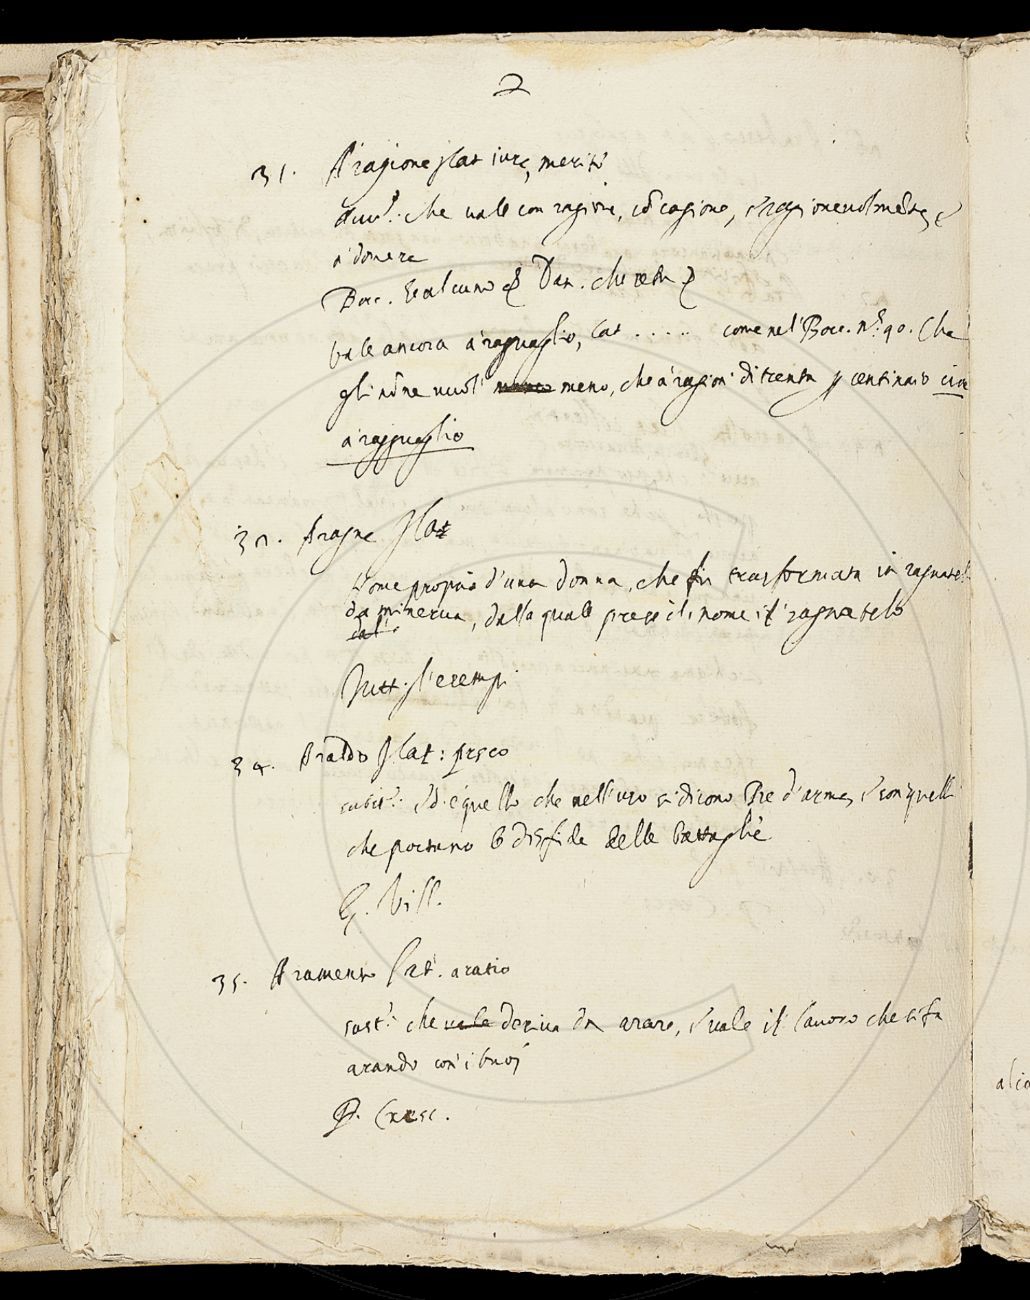 2
31. A ragione lat iure, merito
avv.º che vale con ragione, cō cagione, e ragionevolmēte, e
a dovere
Bocc. E alcuno & Dan. che retta &
vale ancora a ragguaglio, lat ..... come nel Bocc. nº. 90. Che
gli nō ne vuol meno, che a ragion di trenta centinaio cioe
a ragguaglio
32. Aragne lat
Nome proprio d'una donna, che fu trasformata in ragnatelo
da minerva, dalla quale prese il nome il ragnatelo
Tutt. gl'esempi
34. Araldo lat:
sust.º ed è quello che nell'uso si dicono Re d'arme, e son quelli
che portano le disfide delle battaglie
G. Vill.
35. Aramento lat. aratio
sust.º che vale deriva da arare, e vale il lavoro che si fa
arando con i buoi
P. Cresc.